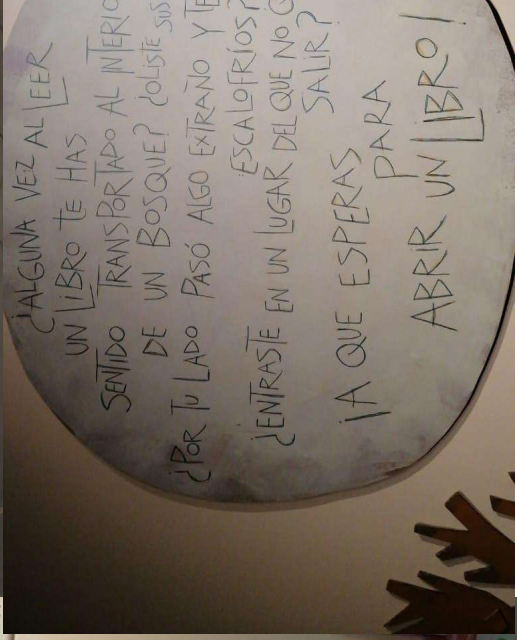 ¿ALGUNA VEZ AL LEER
UN LIBRO TE HAS
SENTIDO TRANSPORTADO AL INTERIO
DE UN BOSQUE? ¿OLISTE SUS
¿POR TU LADO PASÓ ALGO EXTRAÑO Y TE
ESCALOFRÍOS?
¿ENTRASTE EN UN LUGAR DEL QUE NO
SALIR?
¡A QUE ESPERAS
PARA
ABRIR UN LIBRO!